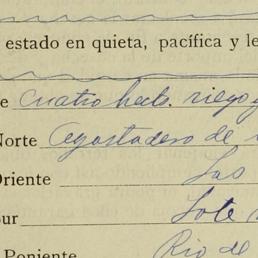 estado en quieta, pacífica y le
e cuatro hects. riego y
Norte Agostadero de
Oriente Las
Sur Lote
Poniente Rio de